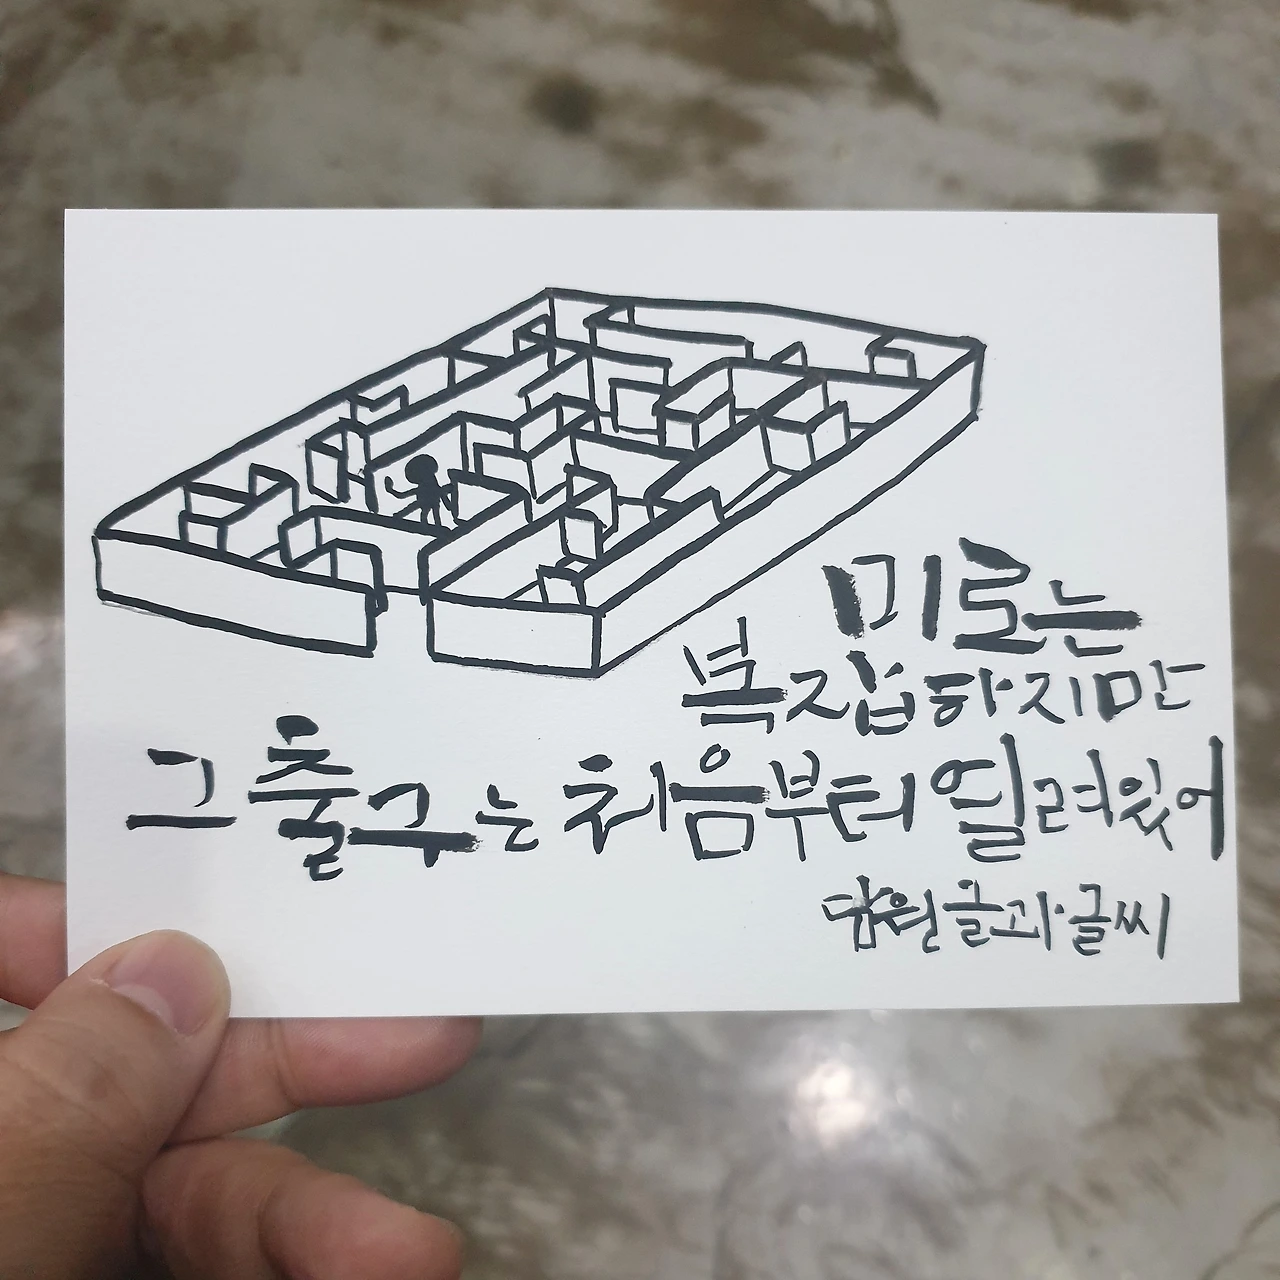 미로는
복잡하지만
그 출구는 처음부터 열려있어
담원 글과 글씨